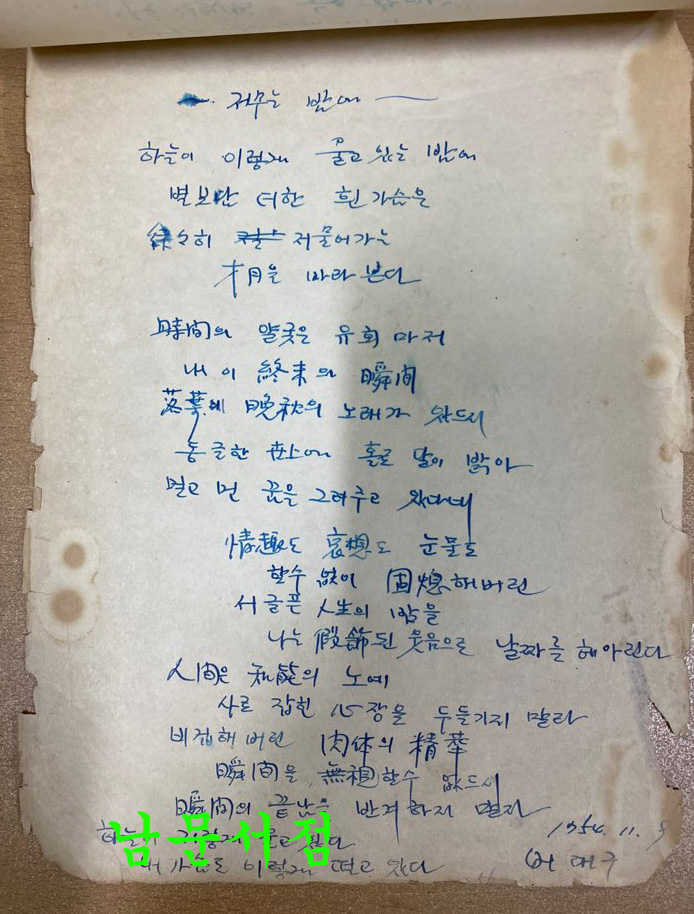 저무는 밤에
하늘이 이렇게 울고 있는 밤에
별보단 더한 흰 가슴을
徐々히 저물어가는
才月을 바라 본다
時間의 얄궂은 유희 마저
내 이 終末의 瞬間
落葉에 晩秋의 노래가 있드시
동글한 世上에 홀로 달이 밝아
멀고 먼 꿈을 그려주고 있다네
情趣도 哀想도 눈물도
할수 없이 해버린
서글픈 人生의 밤을
나는 假飾된 웃음으로 날짜를 헤아린다
人間은 知能의 노예
사로 잡힌 心장을 두들기지 말라
비겁해 버린 肉体의 精華
瞬間을 無視할수 없드시
瞬間의 끝남을 반겨하지 말자
하늘이 울고 있다
내 가슴도 이렇게 떨고 있다
1954. 11. 9
於 대구
남문서점